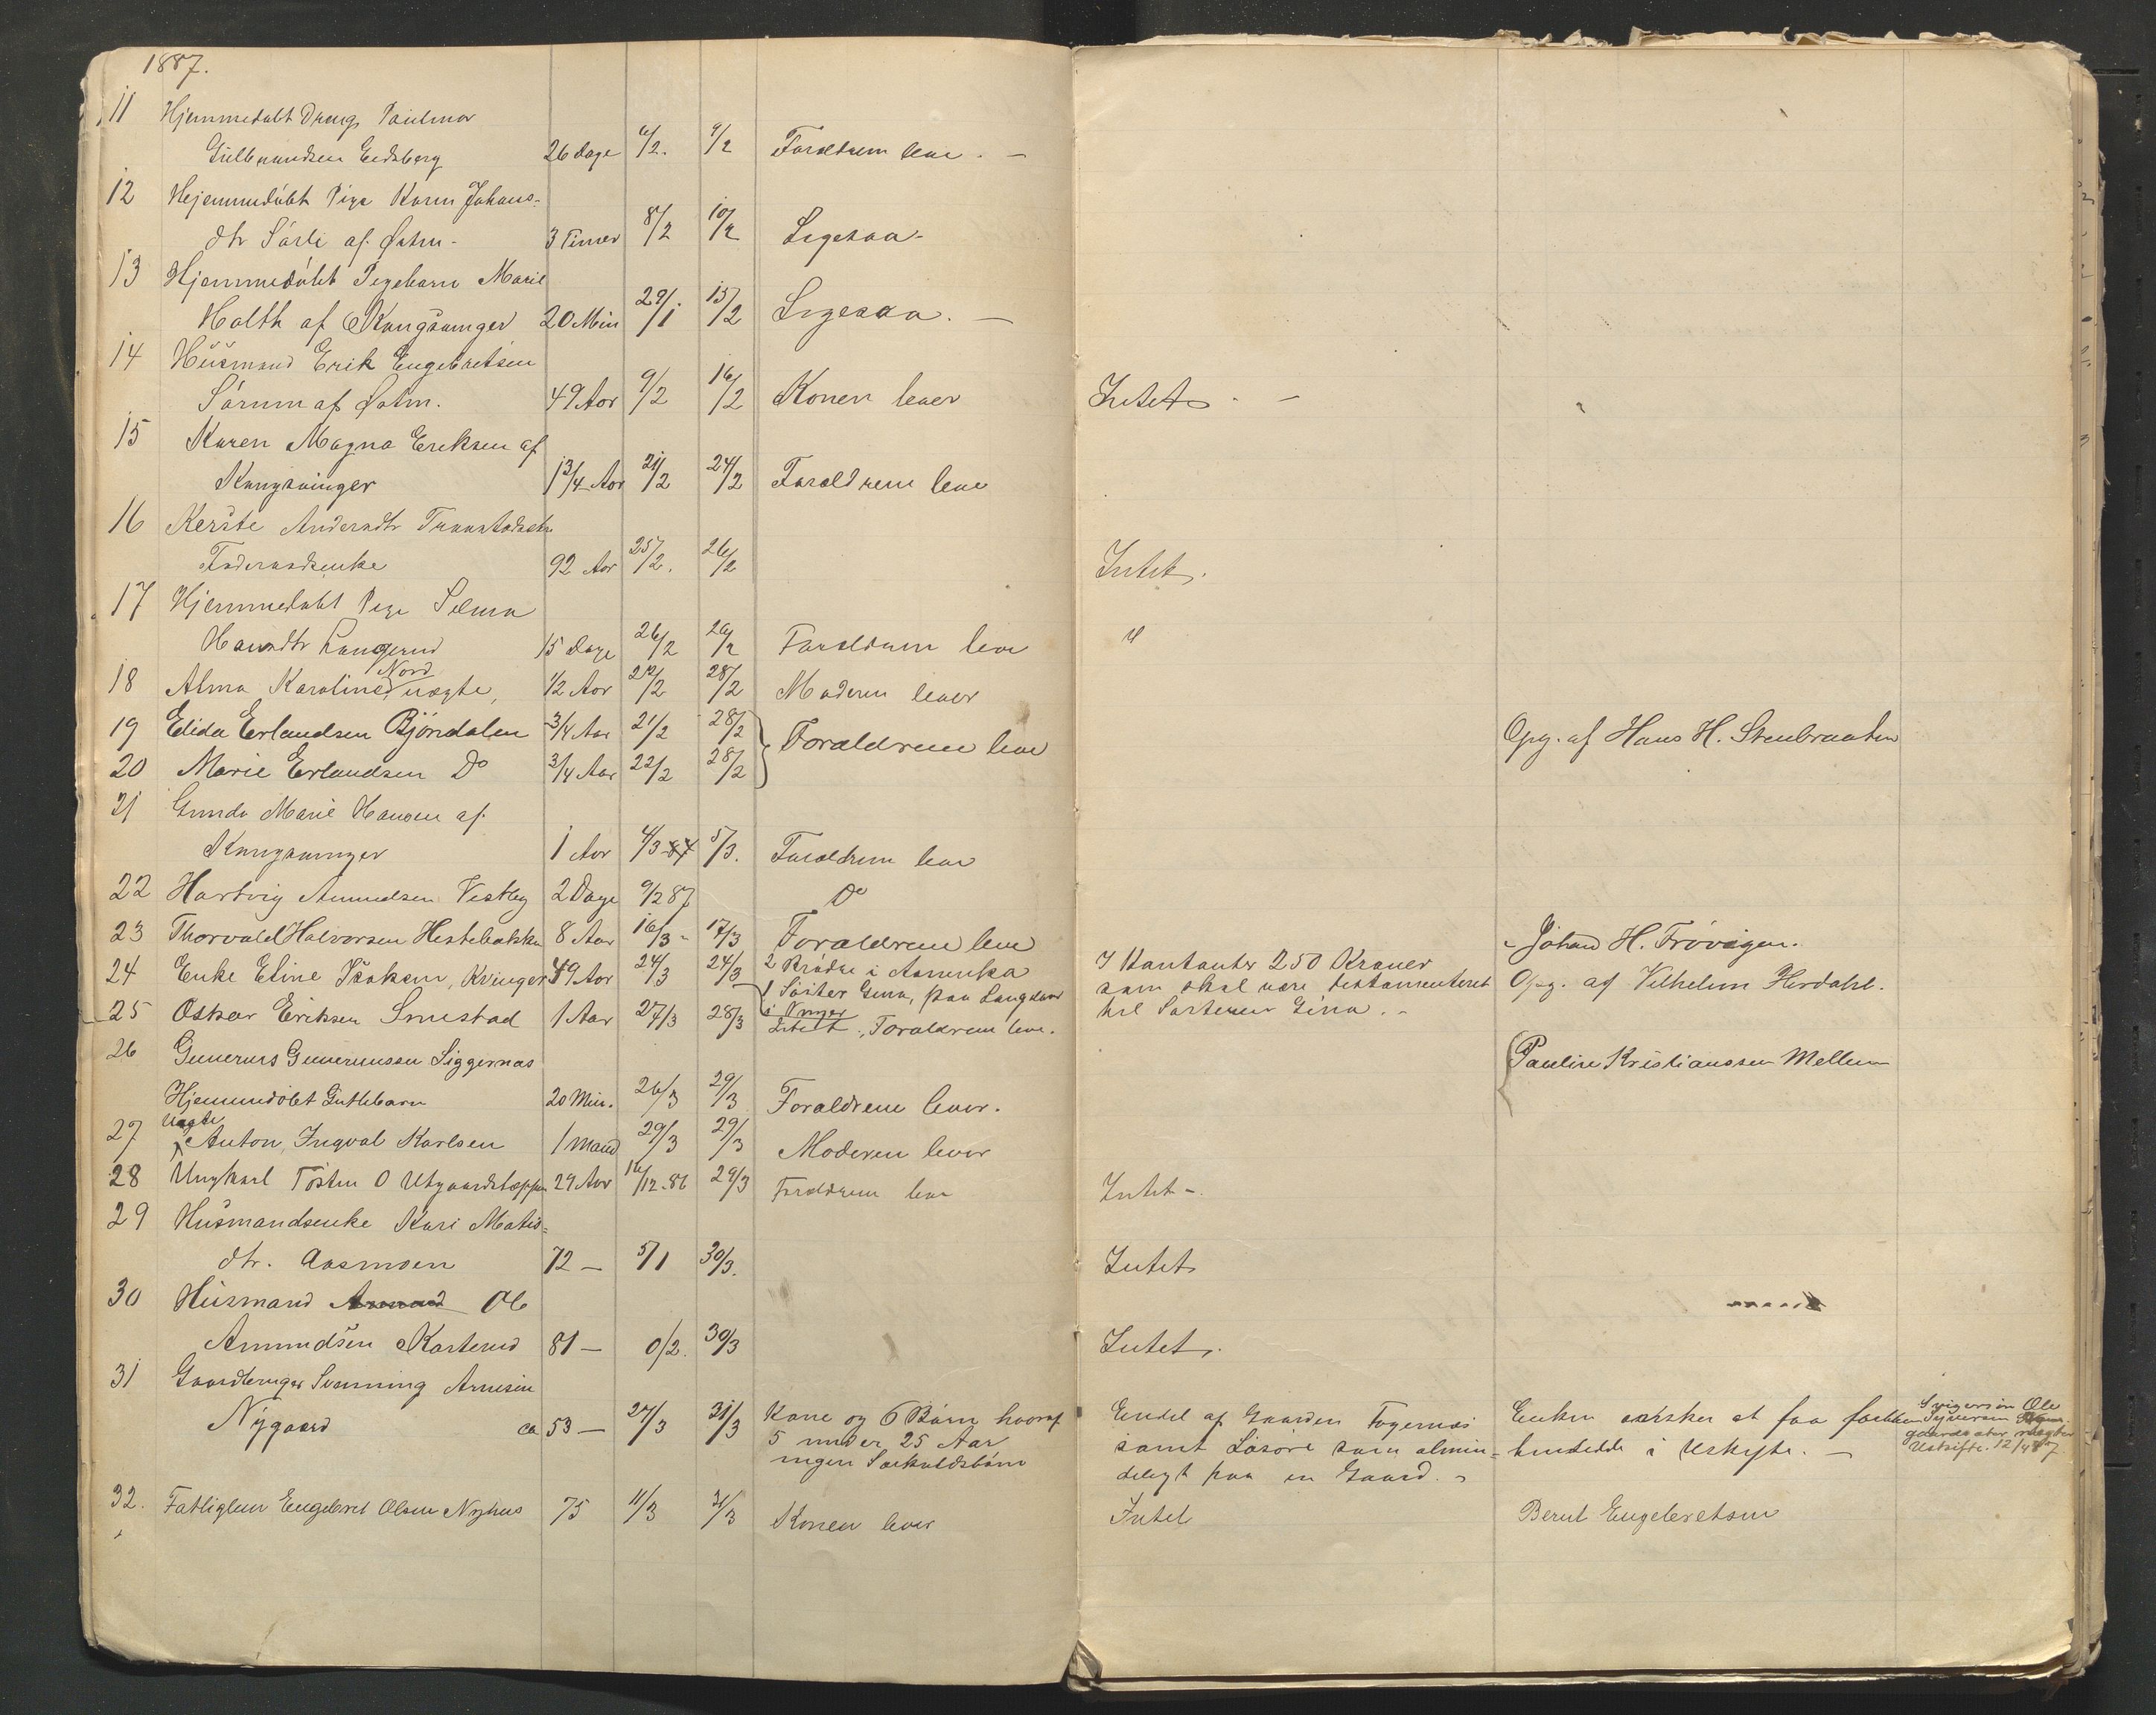 1887.
11 Hjemmedøbt Dreng
Gulbrandsen Eidsberg 26 Dage 6/2. 9/2 Forældrene leve. —
12 Hjemmedøbt Pige Karen Johans-
dtr Sørli af 3 Timer 8/2 10/2 Ligesaa -
13 Hjemmedøbt Pigebarn Marie
Holth af Kongsvinger 20 Min 29/1 15/2 Ligesaa. —
14 Husmand Erik Engebretsen
Sørum af 49 Aar 9/2 16/2 Konen lever Intet. —
15 Karen Magna Eriksen af
Kongsvinger 1 3/4 Aar 21/2 24/2 Forældrene leve
16 Kerste Andersdtr
Føderaadsenke 92 Aar 25/2. 26/2 Intet.
17 Hjemmedøbt Pige Selma
Hansdtr Langerud 15 Dage 26/2 26/2 Forældrene leve "
18 Alma Karoline Nord uægte, 1/2 Aar 22/2 28/2 Moderen lever
19 Elida Erlandsen Bjørndalen 3/4 Aar 21/2 28/2 Forældrene leve Opg. af Hans H. Stenbraaten
20 Marie Erlandsen Do 3/4 Aar 22/2 28/2
21 Gunda Marie Hansen af
Kongsvinger 1 Aar 4/3 87 5/3. Forældrene leve
22 Hartvig Amundsen Vestby 2 Dage 9/2 87 Do
23 Thorvald Halvorsen Hestebakken 8 Aar 16/3 - 17/3 Forældrene leve - Johan H. Frövigen.
24 Enke Eline Isaksen, Kvinger 49 Aar 24/3 24/3 2 Brödre i Amerika
1 Söster Gina, paa Langeland
i Vinger
I Kontanter 250 Kroner
som skal være testamenteret
til Søsteren Gina. -
Opg. af Vilhelm Herdahl.
25 Oskar Eriksen Smestad 1 Aar 27/3 28/3 Intet., Forældrene leve.
26 Gunerius Gunerussen Siggernæs
Hjemmedöbt Guttebarn 20 Min. 26/3 29/3 Forældrene lever. Pauline Kristianssen Mellem
27 uægte Anton, Ingval Karlsen 1 Maand 29/3 29/3 Moderen lever
28 Ungkarl Tosten O Utgaardsløppen 29 Aar 16/12-86 29/3 Forældrene leve Intet -.
29 Husmandsenke Kari Matis-
dtr. Aasmoen 72 — 5/1 30/3. Intet
30 Husmand Ole
Amundsen Kasterud 81 — 0/2. 30/3 Intet.
31 Gaardbruger Svenning Arnesen
Nygaard ca 53 — 27/3 31/3 Kone og 6 Børn hvoraf
5 under 25 Aar
ingen Særkuldsbørn
Endel af Gaarden Fogernæs
samt Løsøre som almin-
deligt paa en Gaard. -
Enken ønsker at faa
hensidde i Uskifte. —
Svigersön Ole
Syversen
12/4 87
32. Fattiglem Engebret Olsen Nyhus 75 11/3 31/3 Konen lever Intet Bernt Engebretsen